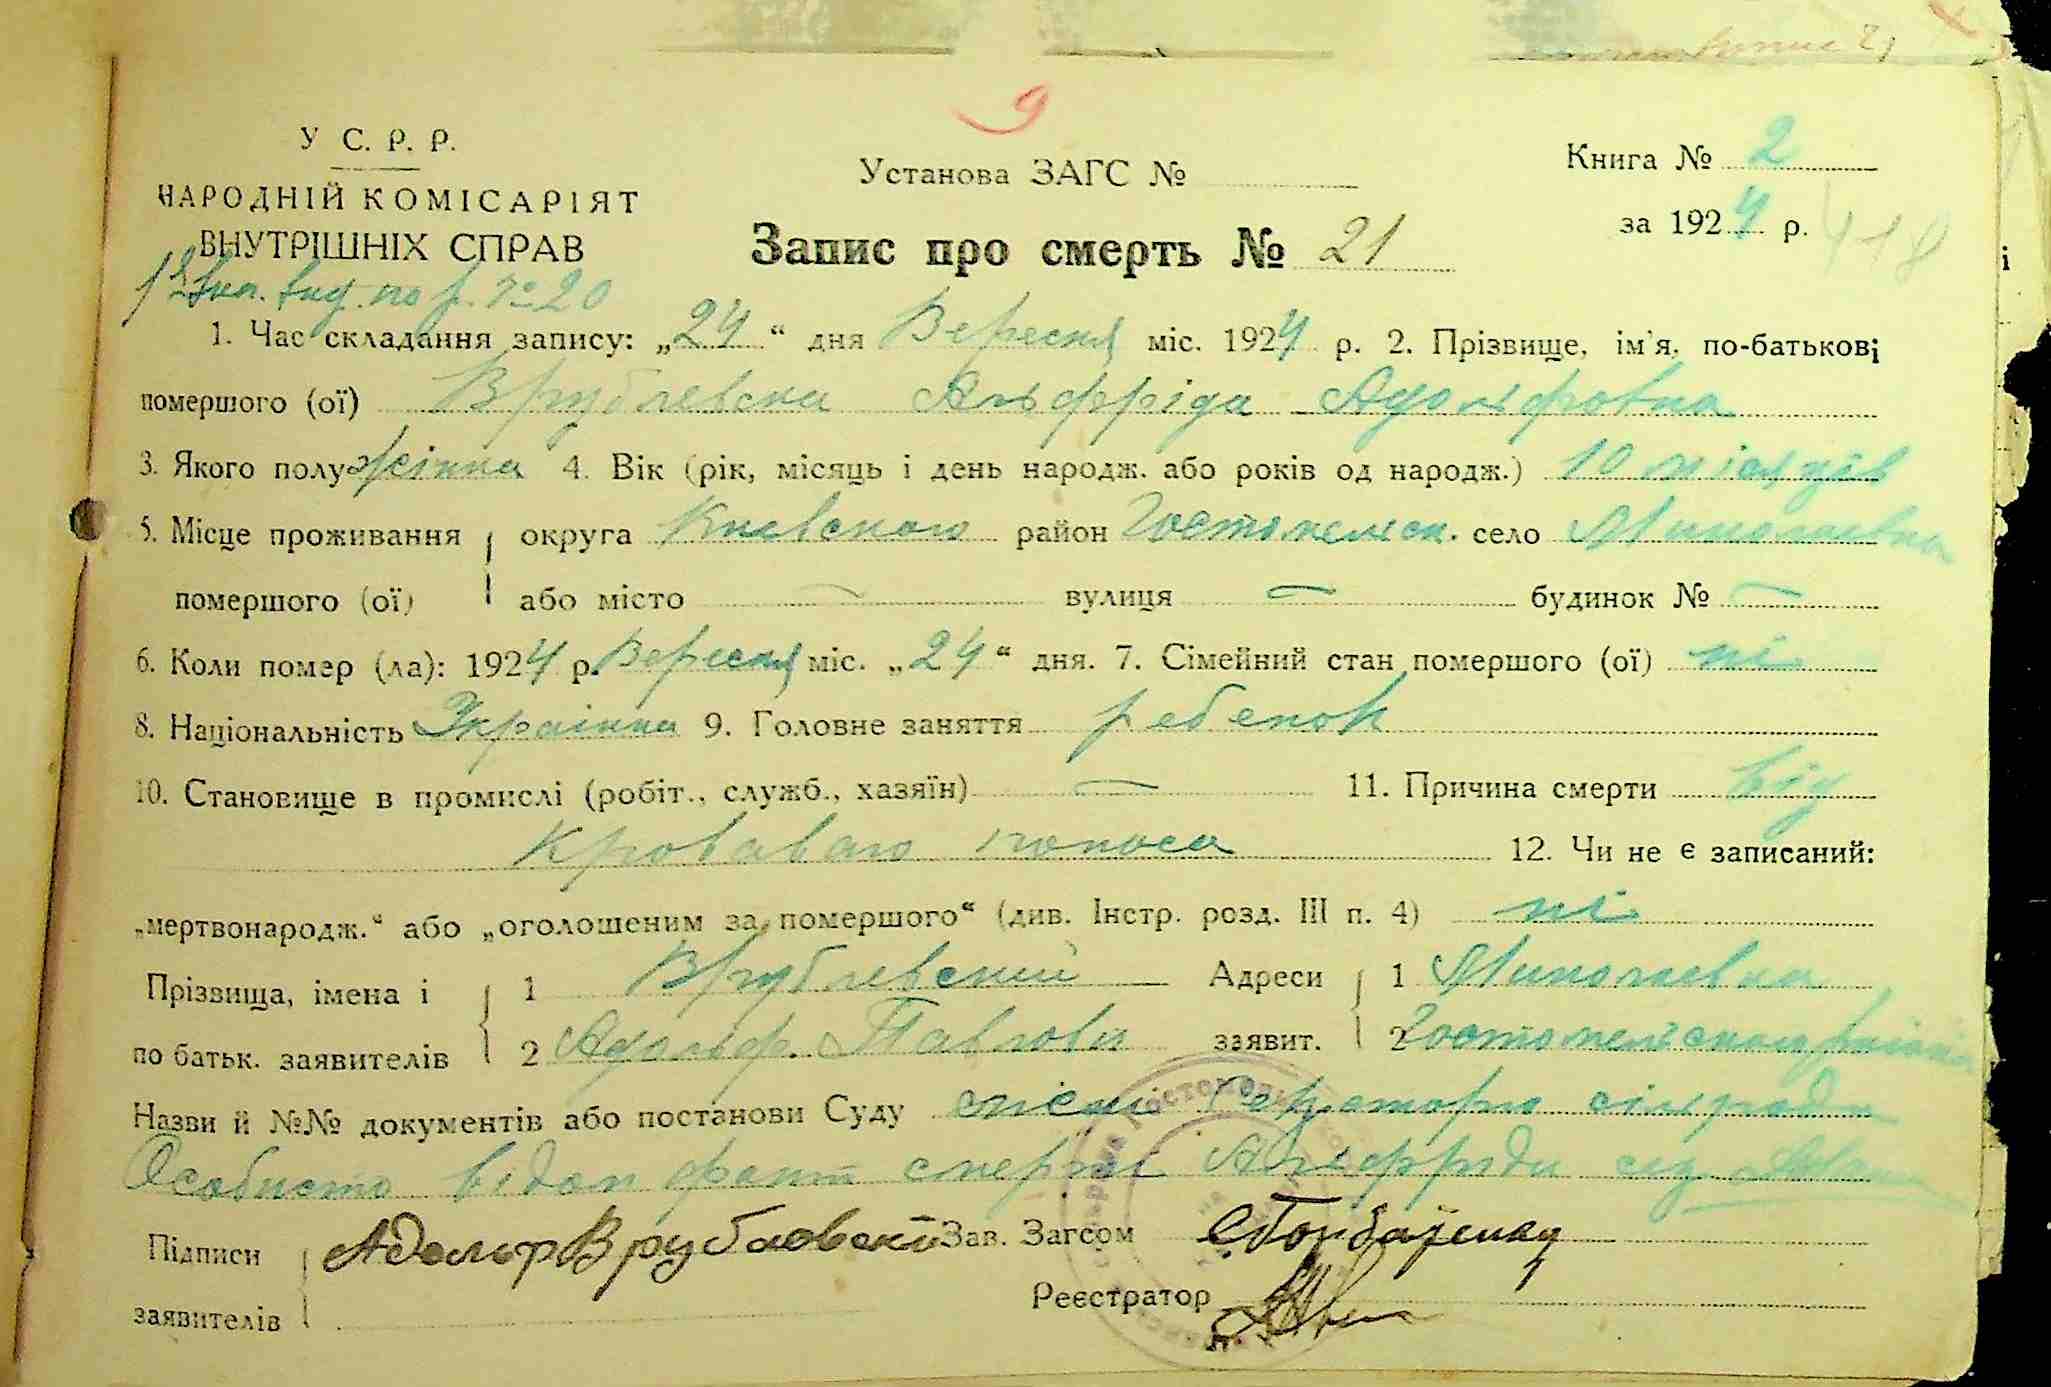 У С. Р. Р.
НАРОДНІЙ КОМІСАРІЯТ
ВНУТРІШНІХ СПРАВ
9
Установа ЗАГС №
Запис про смерть № 21
Книга № 2
за 1924 р.
418
по р. № 20
1. Час складання запису: „24“ дня Вересня міс. 1924 р. 2. Прізвище, ім'я, по-батькові
помершого (ої) Врублевска Альфріда Адольфовна
3. Якого полу жінка 4. Вік (рік, місяць і день народж. або років од народж.) 10 місяців
5. Місце проживання округа Киевского район Гостомельск. село Миколаевка
помершого (ої) або місто — вулиця — будинок № —
6. Коли помер (ла): 1924 р. Вересня міс. „24“ дня. 7. Сімейний стан помершого (ої) ні
8. Національність Украінка 9. Головне заняття ребенок
10. Становище в промислі (робіт., служб., хазяїн) — 11. Причина смерти від
Кроваваго поноса 12. Чи не є записаний:
„мертвонародж.“ або „оголошеним за помершого“ (див. Інстр. розд. III п. 4) ні
Прізвища, імена і 1 Врублевский Адреси 1 Миколаевка
по батьк. заявителів 2 Адольф. Павлови заявит. 2 Гостомельского району
Назви й №№ документів або постанови Суду Секретарю сільради
Особисто відан факт смерті Альфріди
Підписи Адольф Врублевский Зав. Загсом
заявителів Реєстратор